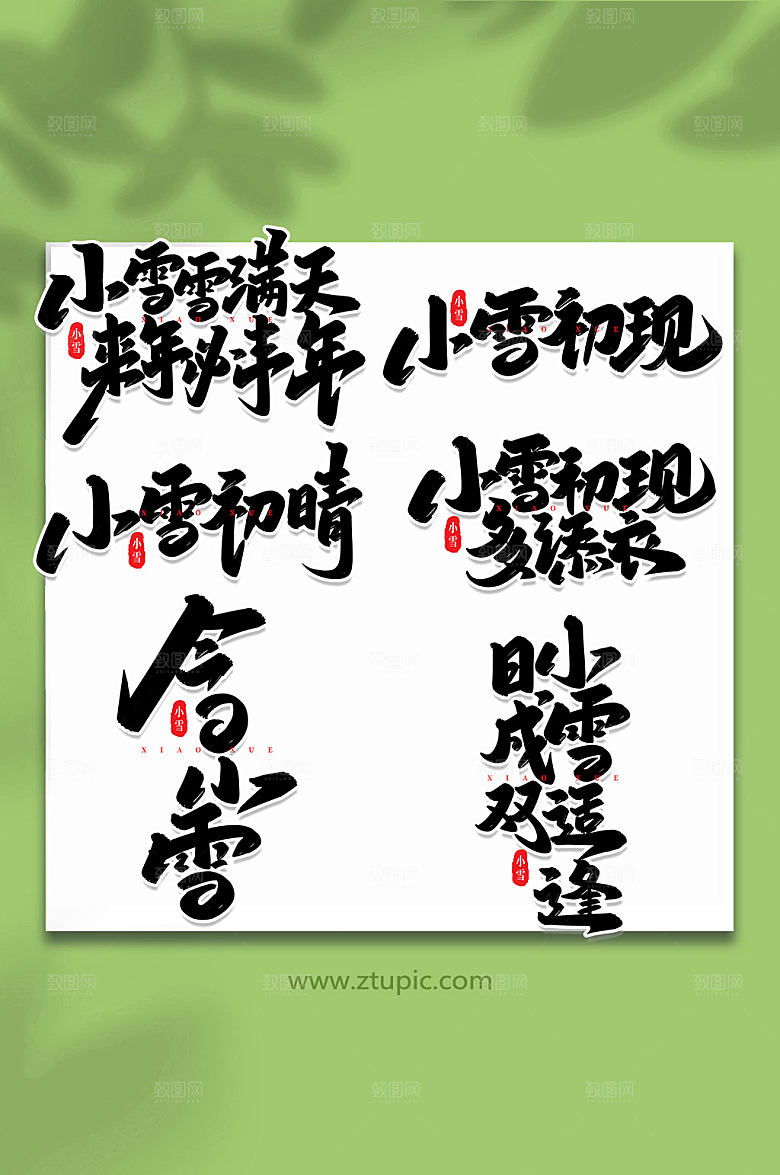 致图网
小雪雪满天
XIAO XUE
小雪
来年必丰年
小雪
小雪初现
XIAO XUE
小雪初晴
XIAO XUE
小雪
小雪初现
XIAO XUE
小雪
多添衣
今日
小雪
XIAO XUE
小雪
小雪适逢
日成双
XIAO XUE
小雪
www.ztupic.com